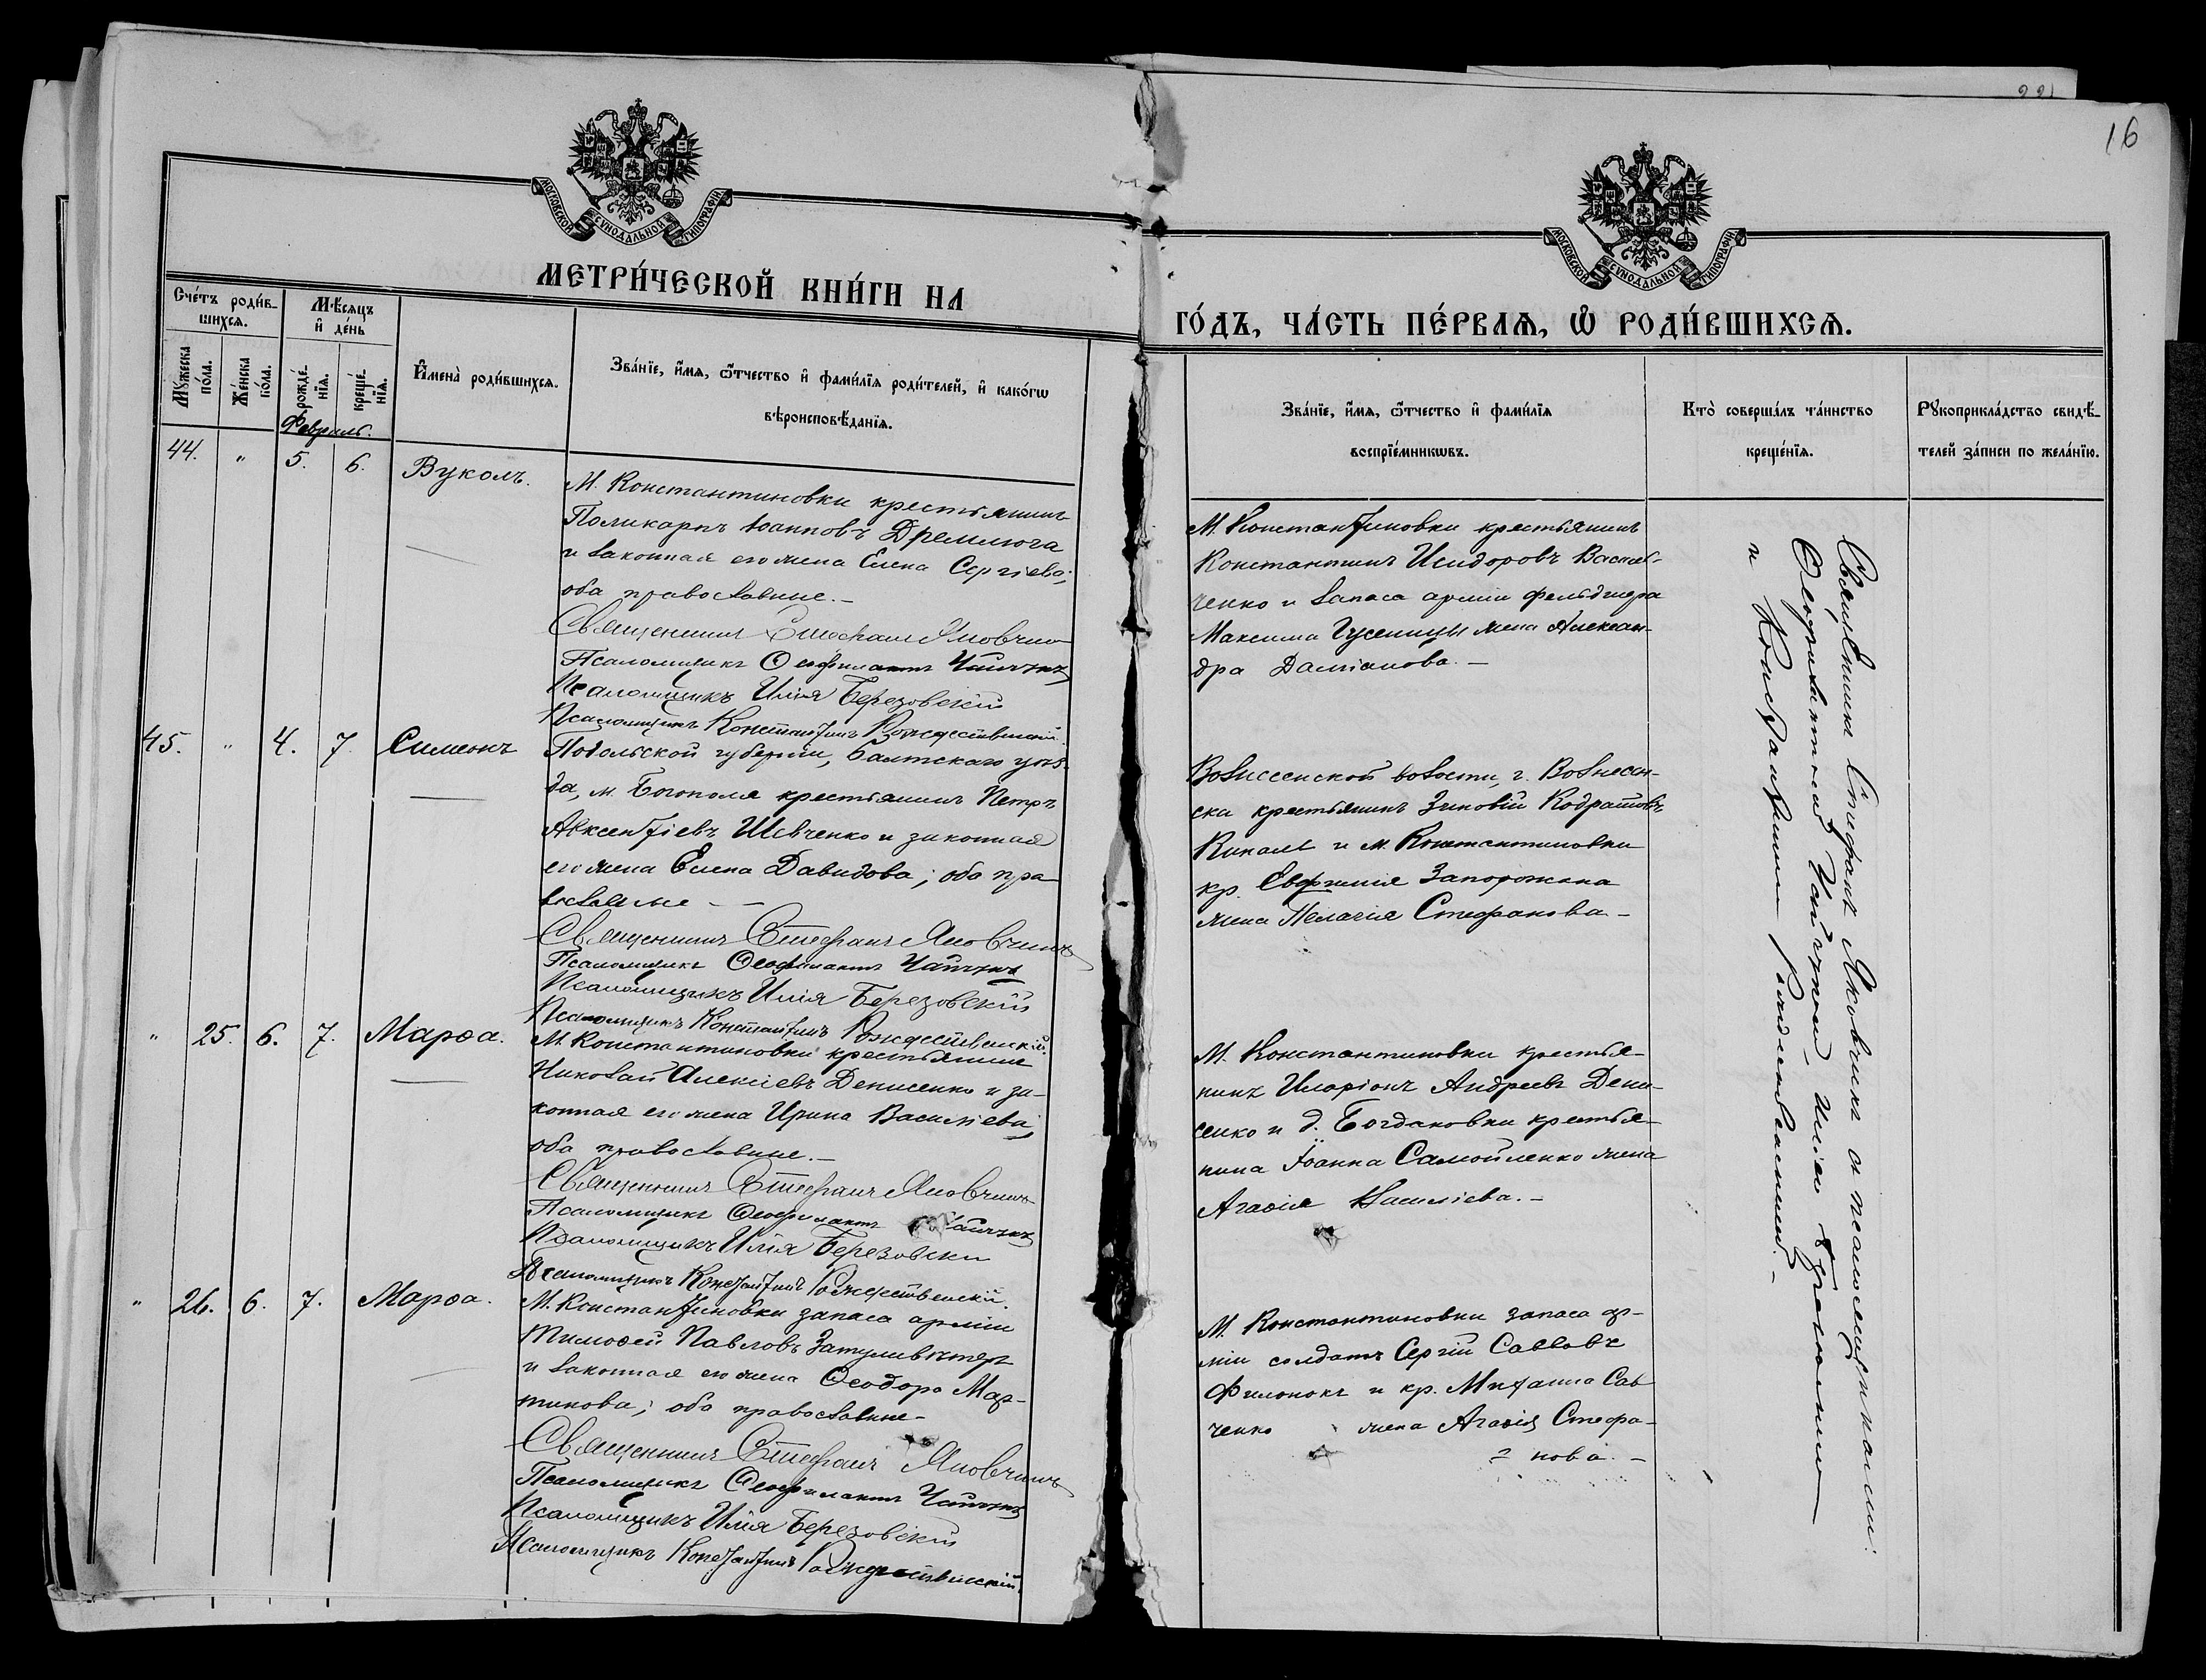 16
МОСКОВСКОЙ СУНОДАЛЬНОЙ ТИПОГРАФІИ
МОСКОВСКОЙ СУНОДАЛЬНОЙ ТИПОГРАФІИ
МЕТРИ́ЧЕСКОЙ КНИ́ГИ НА
ГО́ДЪ, ЧА́СТЬ ПЕ́РВАѦ, Ѡ҆ РОДИ́ВШИХСѦ.
Сче́тъ роди́в-
шихсѧ.
Мꙋ́жеска
по́ла.
Же́нска
по́ла.
Мѣ́сѧцъ
и҆ де́нь
рожде́-
нїѧ.
креще́-
нїѧ.
И҆мена̀ роди́вшихсѧ.
Зва́нїе, и҆́мѧ, ѻ҆́тчество и҆ фами́лїѧ роди́телей, и҆ како́гѡ
вѣроисповѣ́данїѧ.
Зва́нїе, и҆́мѧ, ѻ҆́тчество и҆ фами́лїѧ
воспрїе́мникѡвъ.
Кто̀ соверша́лъ та́инство
креще́нїѧ.
Рꙋкоприкла́дство свидѣ́-
телей за́писи по жела́нїю.
Февраль.
44. " 5. 6. Вуколъ.
М. Константиновки крестьянинъ
Поликарпъ Іоанновъ Дремлюга
и законная его жена Елена Сергіева;
оба православные.-
Священникъ Стефанъ Яновчикъ
Псаломщикъ Ѳеофилактъ
Псаломщикъ Илія Березовскій
Псаломщикъ Константинъ Рождественскій.
М. Константиновки крестьянинъ
Константинъ Исидоровъ Василь-
ченко и запаса арміи фельдшера
Максима Гусеницы жена Алексан-
дра Даміанова.-
45. " 4. 7. Симеонъ
Подольской губерніи, Балтскаго уѣз-
да, м. Богополя крестьянинъ Петръ
Авксентіевъ Шевченко и законная
его жена Елена Давидова; оба пра-
вославные --
Священникъ Стефанъ Яновчикъ
Псаломщикъ Ѳеофилактъ
Псаломщикъ Илія Березовскій
Псаломщикъ Константинъ Рождественскій.
Вознесенской волости, г. Вознесен-
ска крестьянинъ Зиновій Кодратовъ
и м. Константиновки
кр. Евфимія Запорожана
жена Пелагія Стефанова-
" 25. 6. 7. Марѳа.
М. Константиновки крестьянинъ
Николай Алексіевъ Денисенко и за-
конная его жена Ирина Василіева;
оба православные.-
Священникъ Стефанъ Яновчикъ
Псаломщикъ Ѳеофилактъ
Псаломщикъ Илія Березовскій
Псаломщикъ Константинъ Рождественскій.
М. Константиновки крестья-
нинъ Иларіонъ Андреевъ Дени-
сенко и д. Богдановки крестья-
нина Іоанна Самойленко жена
Агаѳія Василіева.-
" 26. 6. 7. Марѳа.
М. Константиновки запаса арміи
Тимоѳей Павловъ Затуливѣтеръ
и законная его жена Ѳеодора Мар-
тинова; оба православные-
Священникъ Стефанъ Яновчикъ
Псаломщикъ Ѳеофилактъ
Псаломщикъ Илія Березовскій
Псаломщикъ Константинъ Рождественскій.
М. Константиновки запаса ар-
міи солдатъ Сергій Саввовъ
Филонокъ и кр. Михаила Сав
ченко жена Агаѳія Стефа-
нова.-
Священникъ Стефанъ Яновчикъ съ псаломщиками:
Ѳеофилактомъ Иліею Березовскимъ
и Константиномъ Рождественскимъ.-